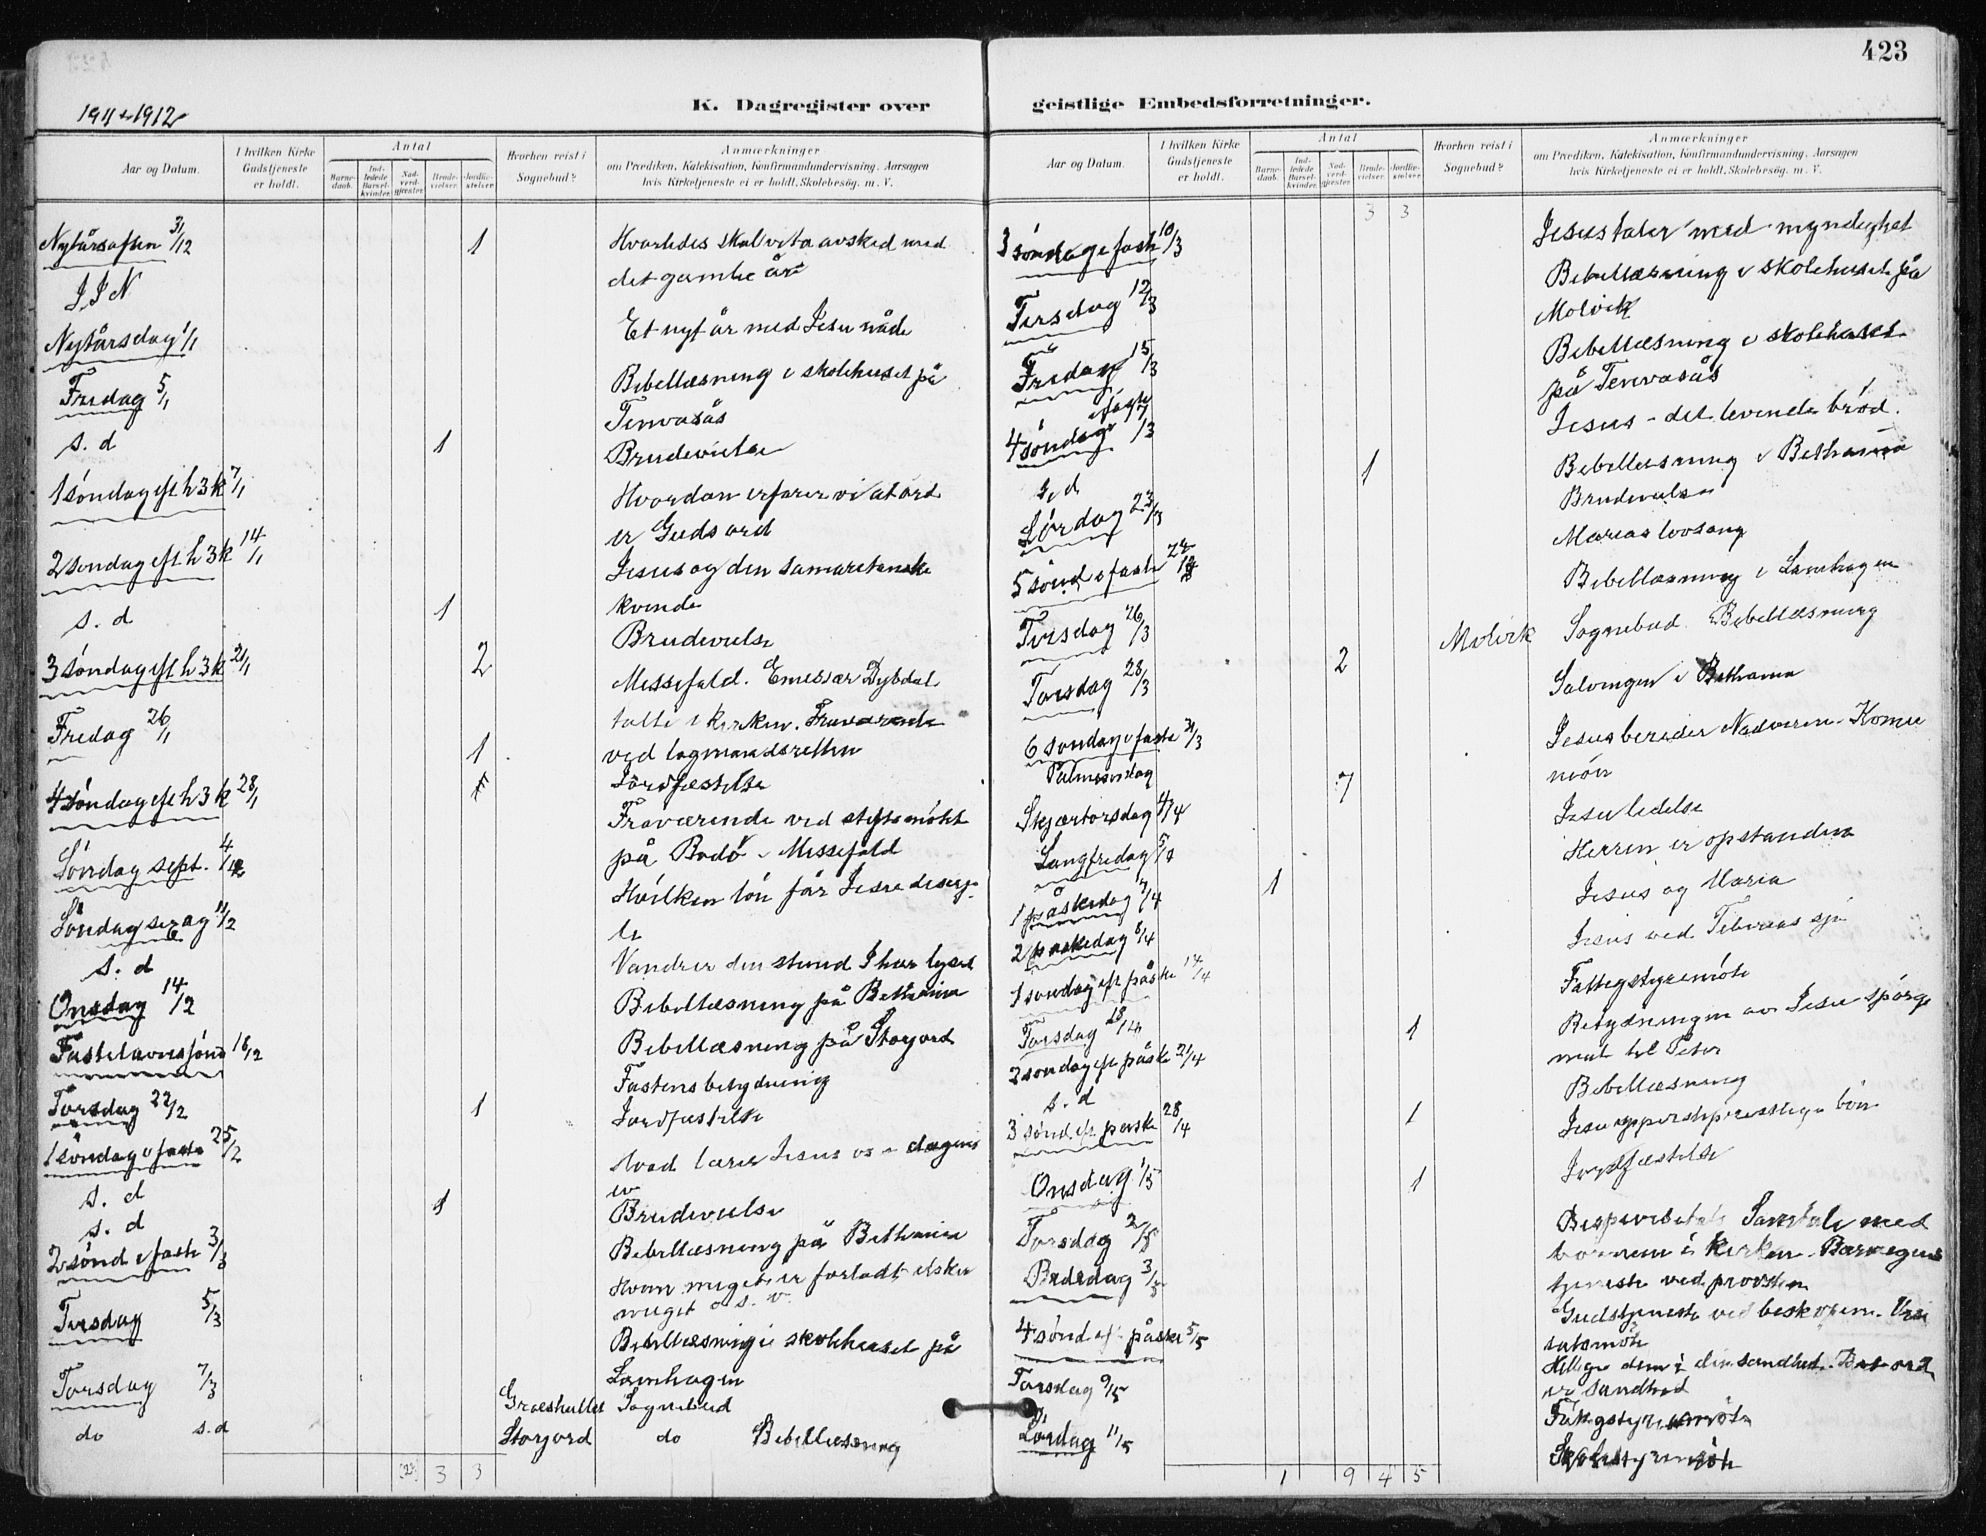 423
1911-1912
K. Dagregister over geistlige Embedsforretninger.
Aar og Datum.
I hvilken Kirke Gudstjeneste er holdt.
Antal
Barnedaab.
Indledede Barselkvinder.
Nadverdgjester.
Brudevielser.
Jordfæstelser.
Hvorhen reist i Sognebud?
Anmærkninger
om Prædiken, Katekisation, Konfirmandundervisning, Aarsagen
hvis Kirketjeneste ei er holdt, Skolebesøg, m. V.
Nytårsaften 31/12 1 Hvorledes skal vi ta avsked med
det gamle år
J J N
Nytårsdag 1/1 Et nyt år med Jesu nåde
Fredag 5/1 Bibellæsning i skolehuset på
Tenvasås
s. d 1 Brudevielse
1 søndag eft h 3 k 7/1 Hvordan erfarer vi at ord
er Guds ord
2 søndag eft h 3 k 14/1 Jesus og den samaritanske
kvinde
s. d 1 Brudevielse
3 søndag eft h 3 k 21/1 2 Messefald. Emissær Dybdal
talte i kirken. Fraværende
ved lagmandsretten
Fredag 26/1 1 Jordfæstelse
4 søndag eft h 3 k 28/1 Fraværende ved stiftsmøtet
på Bodø - Messefald
Søndag sept. 4/2 Hvilken løn får Jesu disip-
le
Søndag sexag 11/2 Vandrer den stund I har lyset
s. d Bibellæsning på Bethania
Onsdag 14/2 Bibellæsning på Storjord
Fastelavnssønd 18/2 Fastens betydning
Torsdag 22/2 1 Jordfæstelse
1 søndag i faste 25/2 Hvad lærer Jesus os - dagens
ev
s. d 1 Brudevielse
s. d Bibellæsning på Bethania
2 sønd i faste 3/3 Hvem meget er forladt elsker
meget o. s. v.
Tirsdag 5/3 Bibellæsning i skolehuset på
Lamhagen
Torsdag 7/3 Sognebud
do s. d Storjord do Bibellæsning
3 3
Aar og Datum.
I hvilken Kirke Gudstjeneste er holdt.
Antal
Barnedaab.
Indledede Barselkvinder.
Nadverdgjester.
Brudevielser.
Jordfæstelser.
Hvorhen reist i Sognebud?
Anmærkninger
om Prædiken, Katekisation, Konfirmandundervisning, Aarsagen
hvis Kirketjeneste ei er holdt, Skolebesøg, m. V.
3 3
3 søndag i faste 10/3 Jesus taler med myndighet
Tirsdag 12/3 Bibellæsning i skolehuset på
Molvik
Fredag 15/3 Bibellæsning i skolehuset
på Tenvasås
4 søndag i faste 17/3 Jesus - det levende brød.
s. d 1 Bibellæsning i Bethania
Lørdag 23/3 Brudevielse
5 sønd i faste 24/3 Marias lovsang
Tirsdag 26/3 Bibellæsning i Lamhagen
Torsdag 28/3 2 Molvik Sognebud. Bibellæsning
6 søndag i faste 31/3 Salvingen i Bethania
Palmesøndag
Skjærtorsdag 4/4 7 Jesus bereder Nadveren - Komu
nion
Langfredag 5/4 Jesu lidelse
1 påskedag 7/4 1 Herren er opstanden
2 påskedag 8/4 Jesus og Maria
1 søndag eft påske 14/4 Jesus ved Tiberias sjø
Torsdag 18/4 1 Fattigstyremøte
2 søndag eft påske 21/4 Betydningen av Jesu spørgs
mal til Peter
s. d Bibellæsning
3 sønd. eft påske 28/4 1 Jesu ypperstepresstelige bøn
Onsdag 1/5 1 Jordfæstelse
Torsdag 2/5 Bispevisitats Samtale med
barnene i kirken. Barnegus
tjeneste ved provsten
Bededag 3/5 Gudstjeneste ved biskopen. Visi
tatsmøte
4 sønd eft påske 5/5 Hellige dem i din sandhed. Dit ord
er sandhed
Torsdag 9/5 Fatigstyremøte
Lørdag 11/5 Skolestyremøte
1 9 4 5